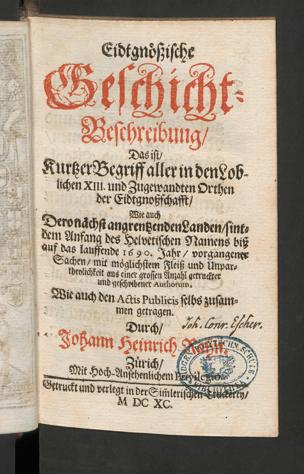 Eidtgnößische
Geschicht-
Beschreibung/
Das ist/
Kurtzer Begriff aller in den Lob-
lichen XIII. und Zugewandten Orthen
der Eidtgnoßschafft/
Wie auch
Dero nächst angrentzenden Landen/ sint-
dem Anfang des Helvetischen Namens biß
auf das lauffende 1690. Jahr/ vorgangener
Sachen/ mit möglichstem Fleiß und Unpar-
theylichkeit aus einer grossen Anzahl getruckter
und geschribener Authorum.
Wie auch den Actis Publicis selbs zusam-
men getragen.
Joh. Conr. Escher.
Durch/
Johann Heinrich
Zürich/
Mit Hoch-Ansehenlichem Privilegio.
Getruckt und verlegt in der Simlerischen Truckerey/
M DC XC.